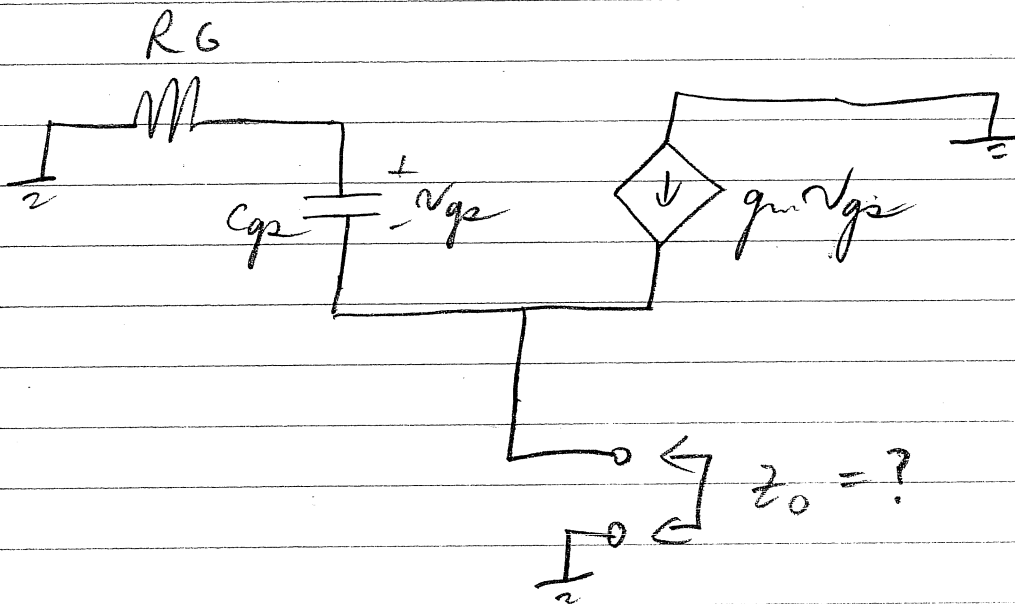 RG
+
Cgs
-
vgs
gm vgs
Zo = ?